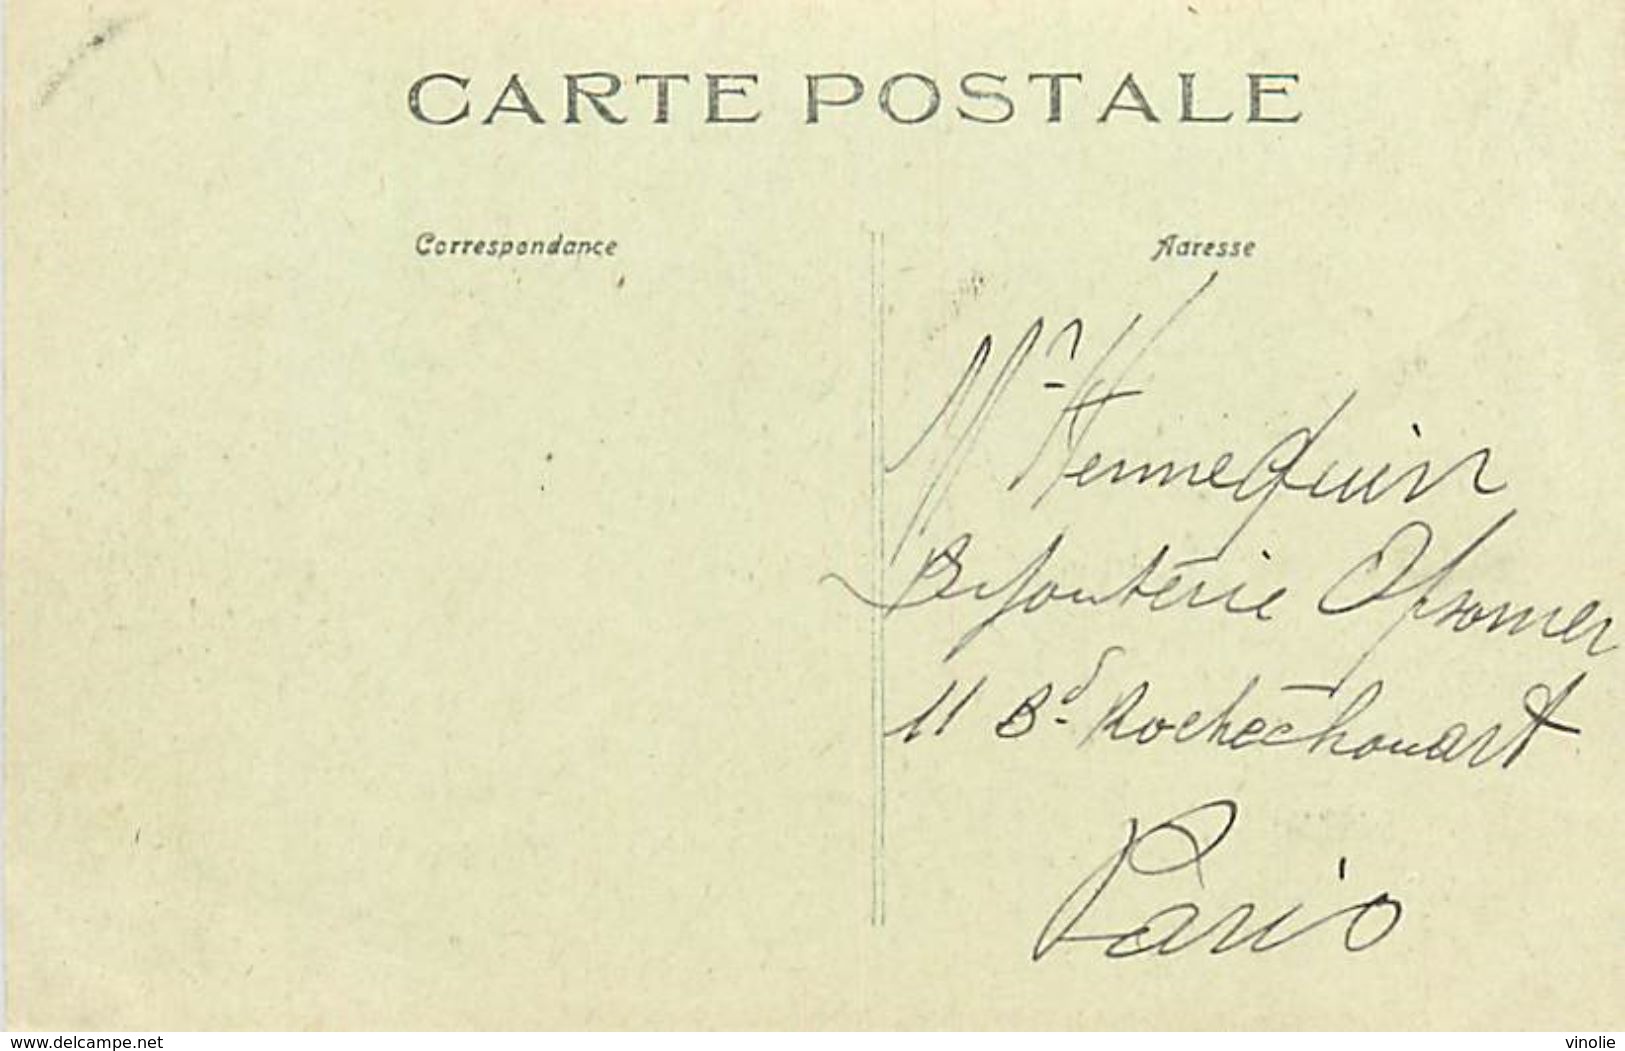 CARTE POSTALE
Correspondance
Adresse
Mr Hennequin
Bijouterie Opsomer
11 Bd Rochechouart
Paris
www.delcampe.net
vinolie